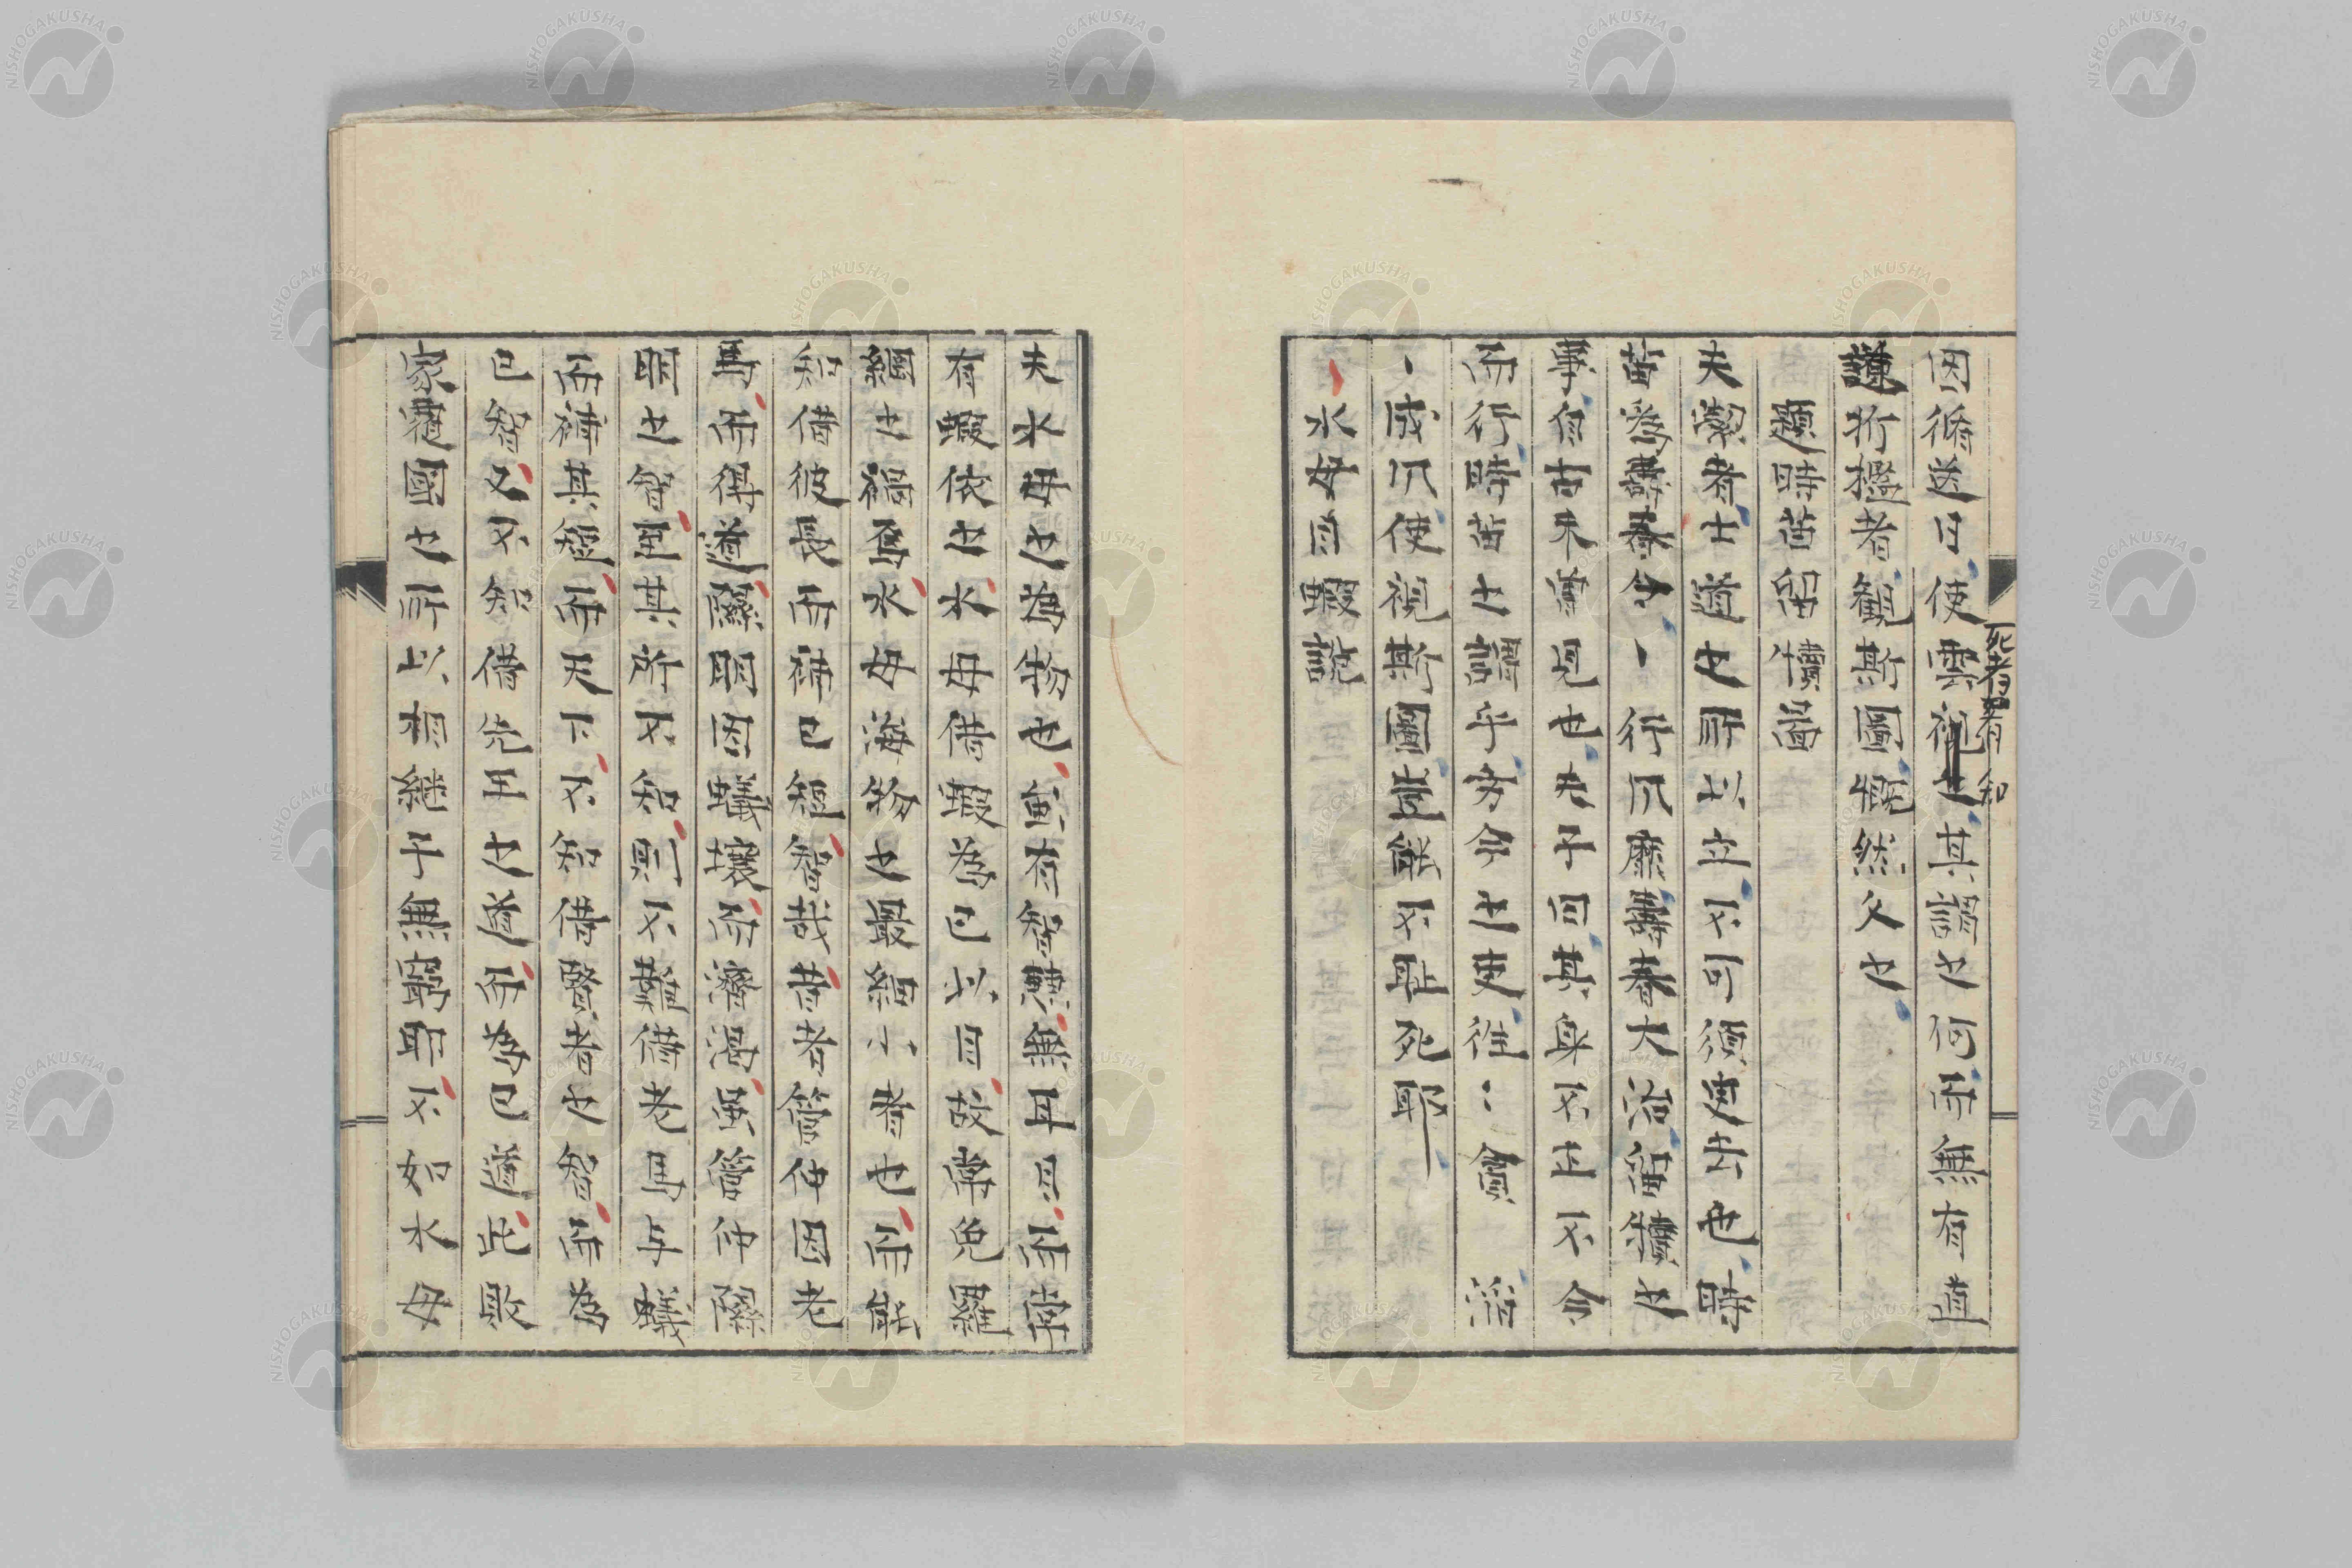 因循送日使靈視之其謂之何而無有道
死者有知
謹折檻者観斯圖観然父之
題時苗留犢圖
夫潔者士道之所以立不可須臾去也時
苗為壽春令、行所産壽春大治留犢也
事自古未曾見也夫子曰其身不正不令
而行時苗之謂乎方今之吏往々貪 済
、成所使視斯圖豈能不耻死耶
水母目蝦説
夫水母之為物也寅有智慧無耳目而常
有蝦依之水母借蝦為己以目故常免羅
網之禍焉水母海物之最細々者也而能
知借彼長而補己短智哉昔者管仲因老
馬而得道隰明因蟻壌而濟渇夫管仲隰
明之智因其所不知則不難借老馬与蟻
而補其短而天下不知借賢者之智而為
己智又不知借先王之道而為己道亡敗
家遭國之所以相継乎無窮耶不如水母
NISHOGAKUSHA